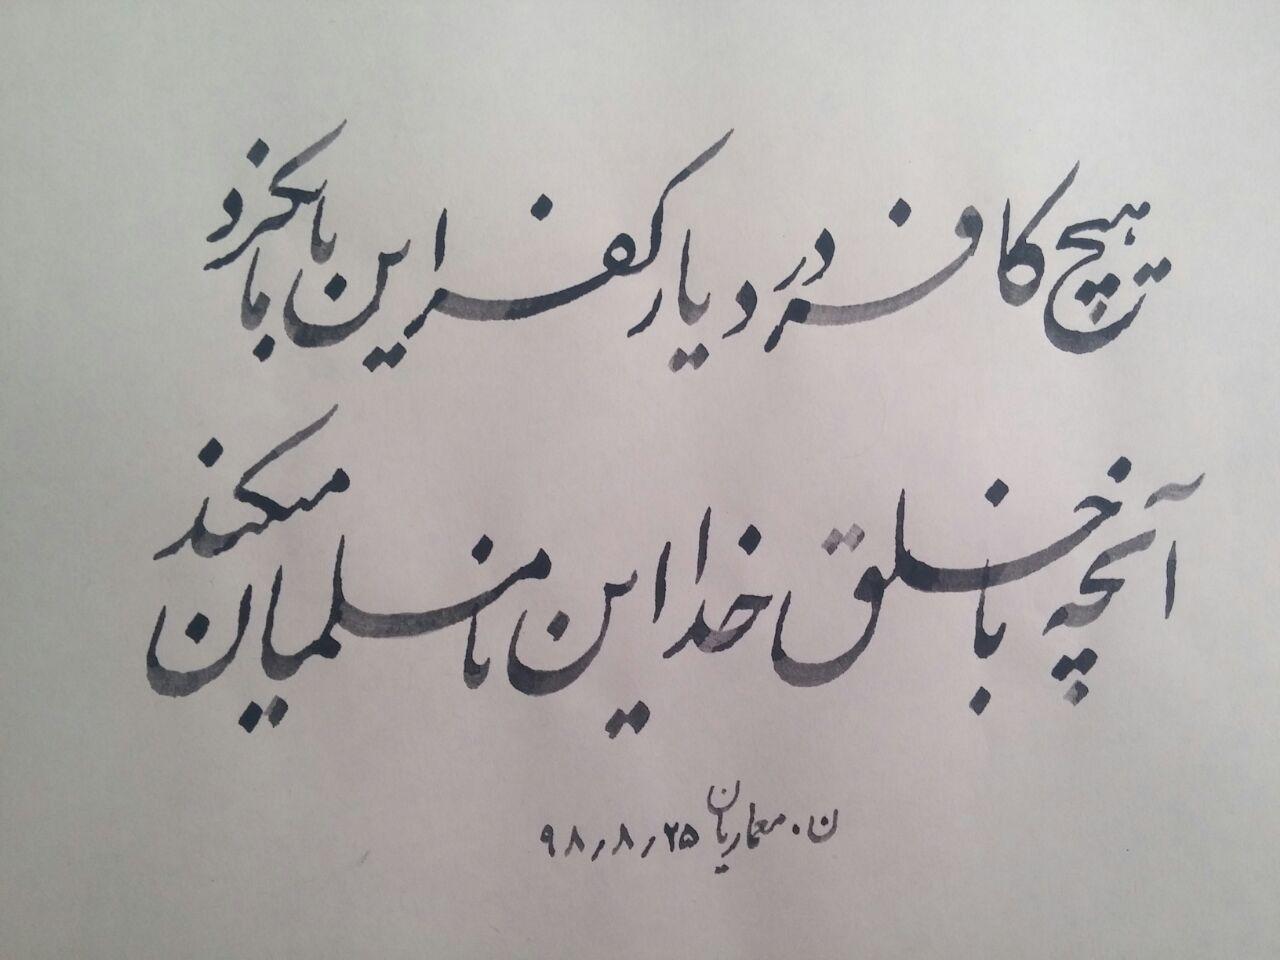 هیچ کافر در دیار کفر این با ما نکرد
آنچه با خلق خدا این نامسلمانان میکنند
ن. معماریان ۹۸٫۸٫۲۵